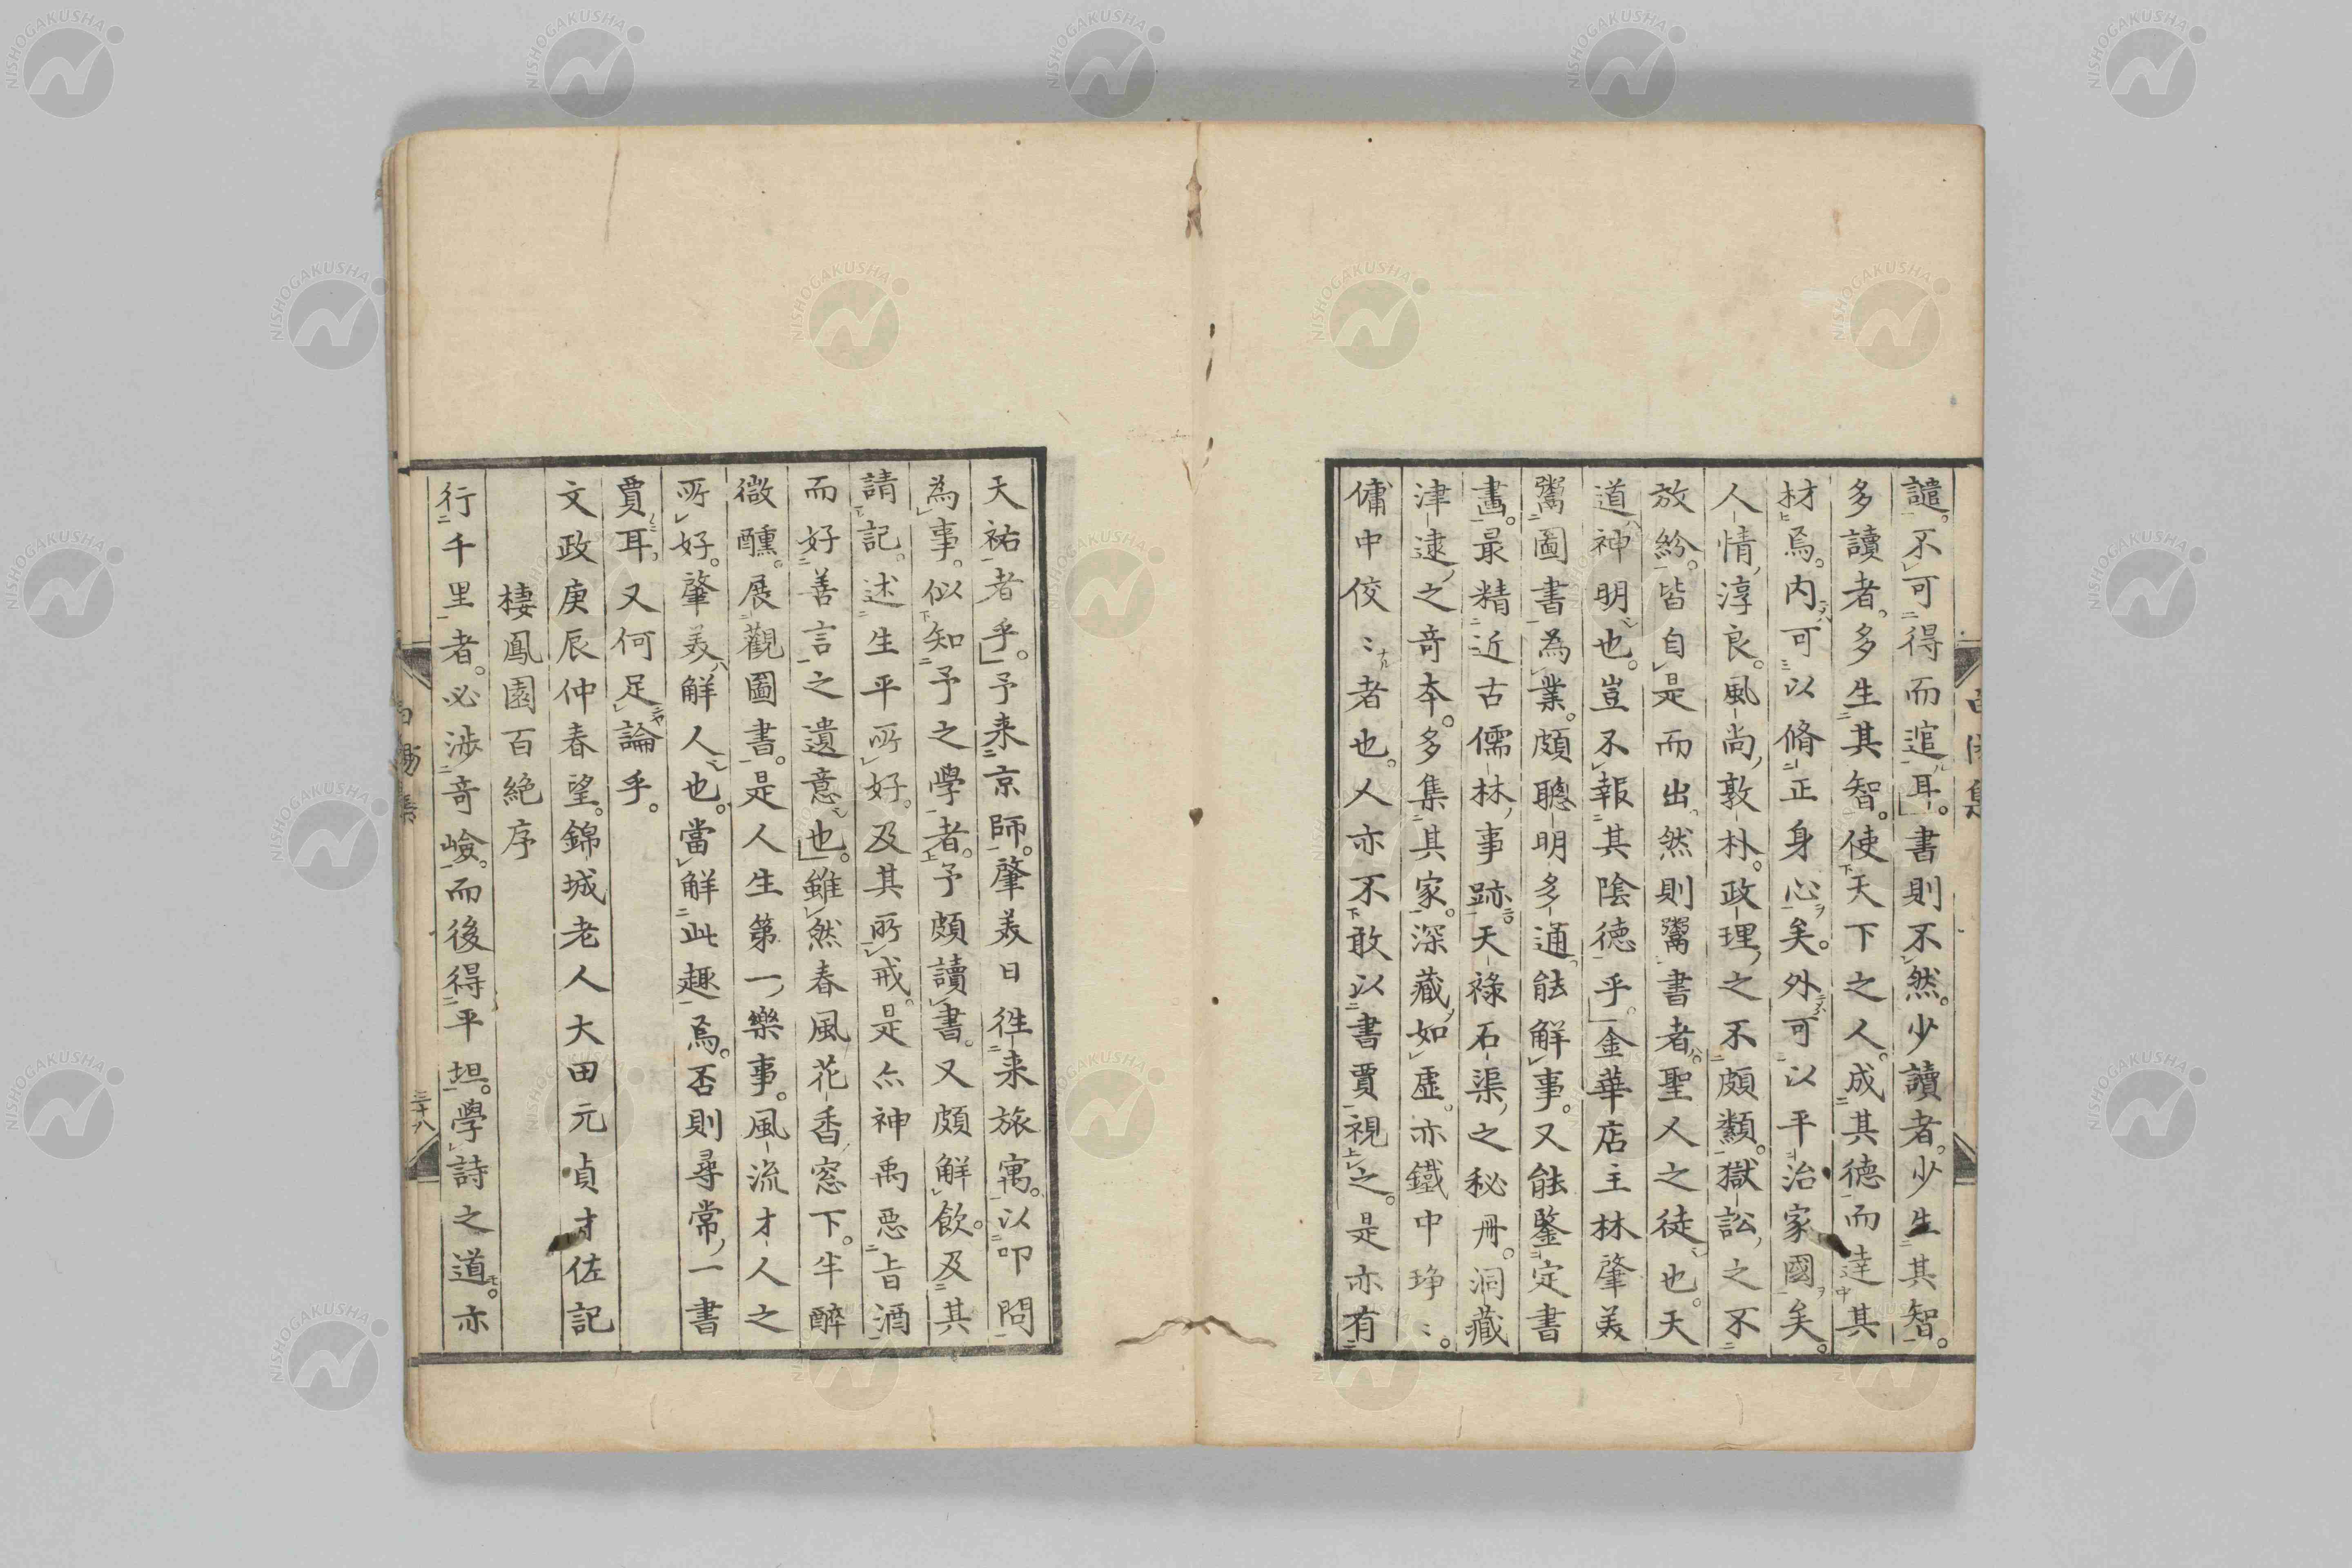 譴。不可得而逭耳。書則不然。少讀者。少生其智。
多讀者。多生其智。使天下之人。成其德而達其
材焉。内可以脩正身心矣。外可以平治家國矣。
人情淳良。風尚敦朴。政理之不頗纇。獄訟之不
放紛。皆自是而出。然則鬻書者。聖人之徒也。天
道神明也。豈不報其陰德乎。金華店主林肇美
鬻圖書為業。頗聰明多通。能解事。又能鑒定書
畫。最精近古儒林事跡。天祿石渠之秘冊。洞藏
津逮之奇本。多集其家。深藏如虛。亦鐵中琤〻。
傭中佼〻者也。人亦不敢以書賈視之。是亦有
天祐者乎。予来京師。肇美日徃来旅寓。以叩問
為事。似知予之學者。予頗讀書。又頗解飲。及其
請記。述生平所好。及其所戒。是亦神禹惡旨酒
而好善言之遺意也。雖然春風花香窓下。半醉
微醺。展觀圖書。是人生第一樂事。風流才人之
所好。肇美解人也。當解此趣焉。否則尋常一書
賈耳。又何足論乎。
文政庚辰仲春望。錦城老人大田元貞才佐記
棲鳳園百絶序
行千里者。必涉奇嶮。而後得平坦。學詩之道。亦
三十八
NISHOGAKUSHA